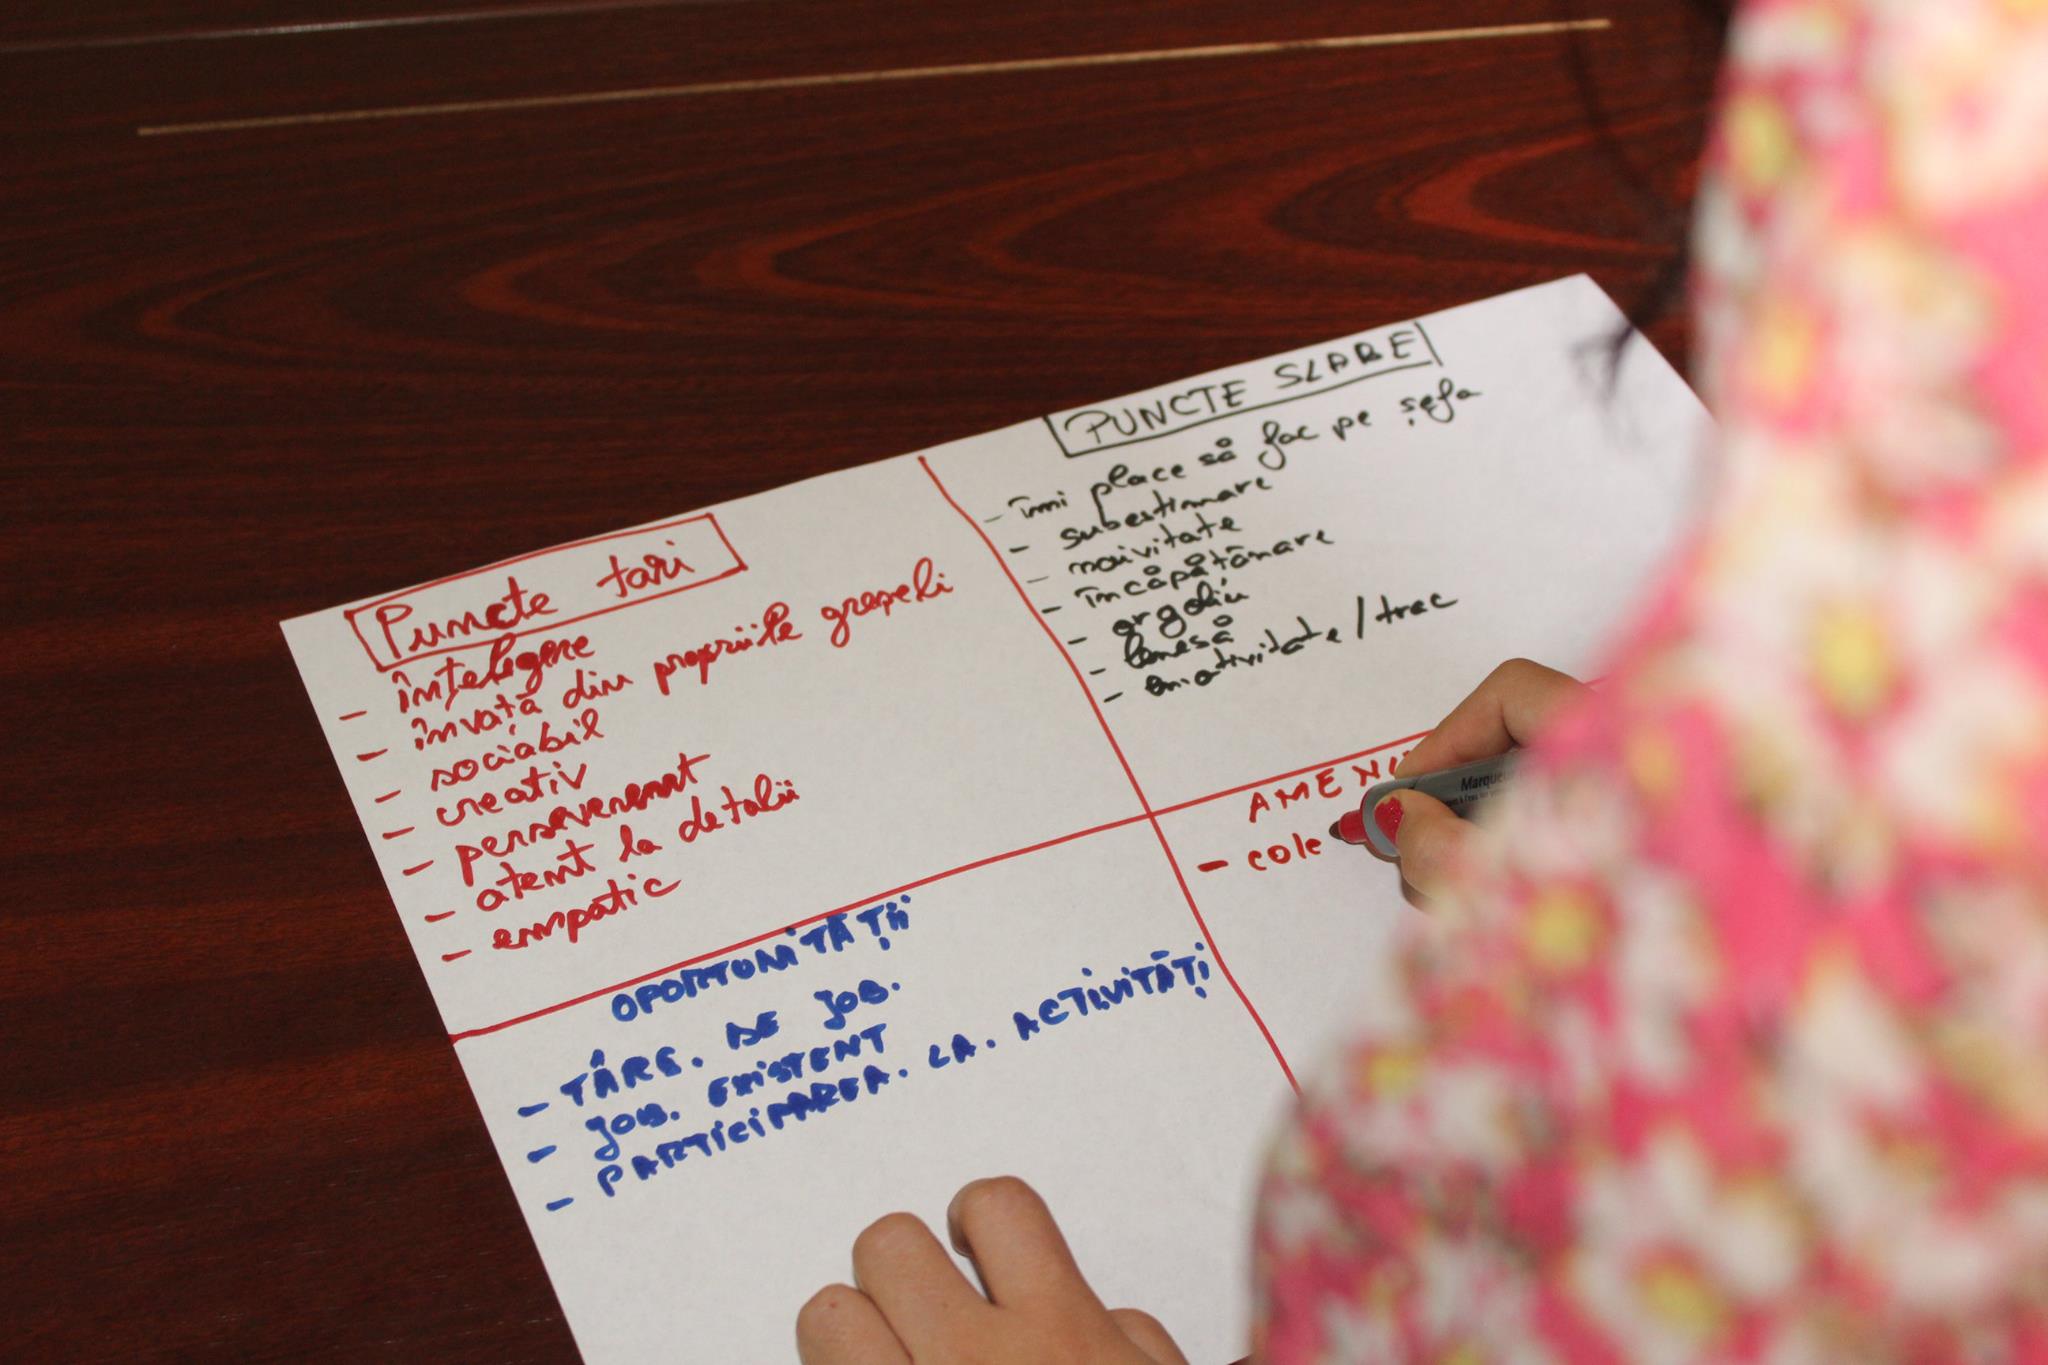 Puncte tari
- înțelegere
- învață din propriile greșeli
- sociabil
- creativ
- perseverent
- atent la detalii
- empatic
PUNCTE SLABE
- îmi place să fac pe șefa
- subestimare
- naivitate
- încăpățânare
- orgoliu
- lenesă
- emotivitate / trac
OPORTUNITĂȚII
- TÂRG. DE JOB.
- JOB. EXISTENT
- PARTICIPAREA. LA. ACTIVITĂȚI
AMENI
- cole
Marque